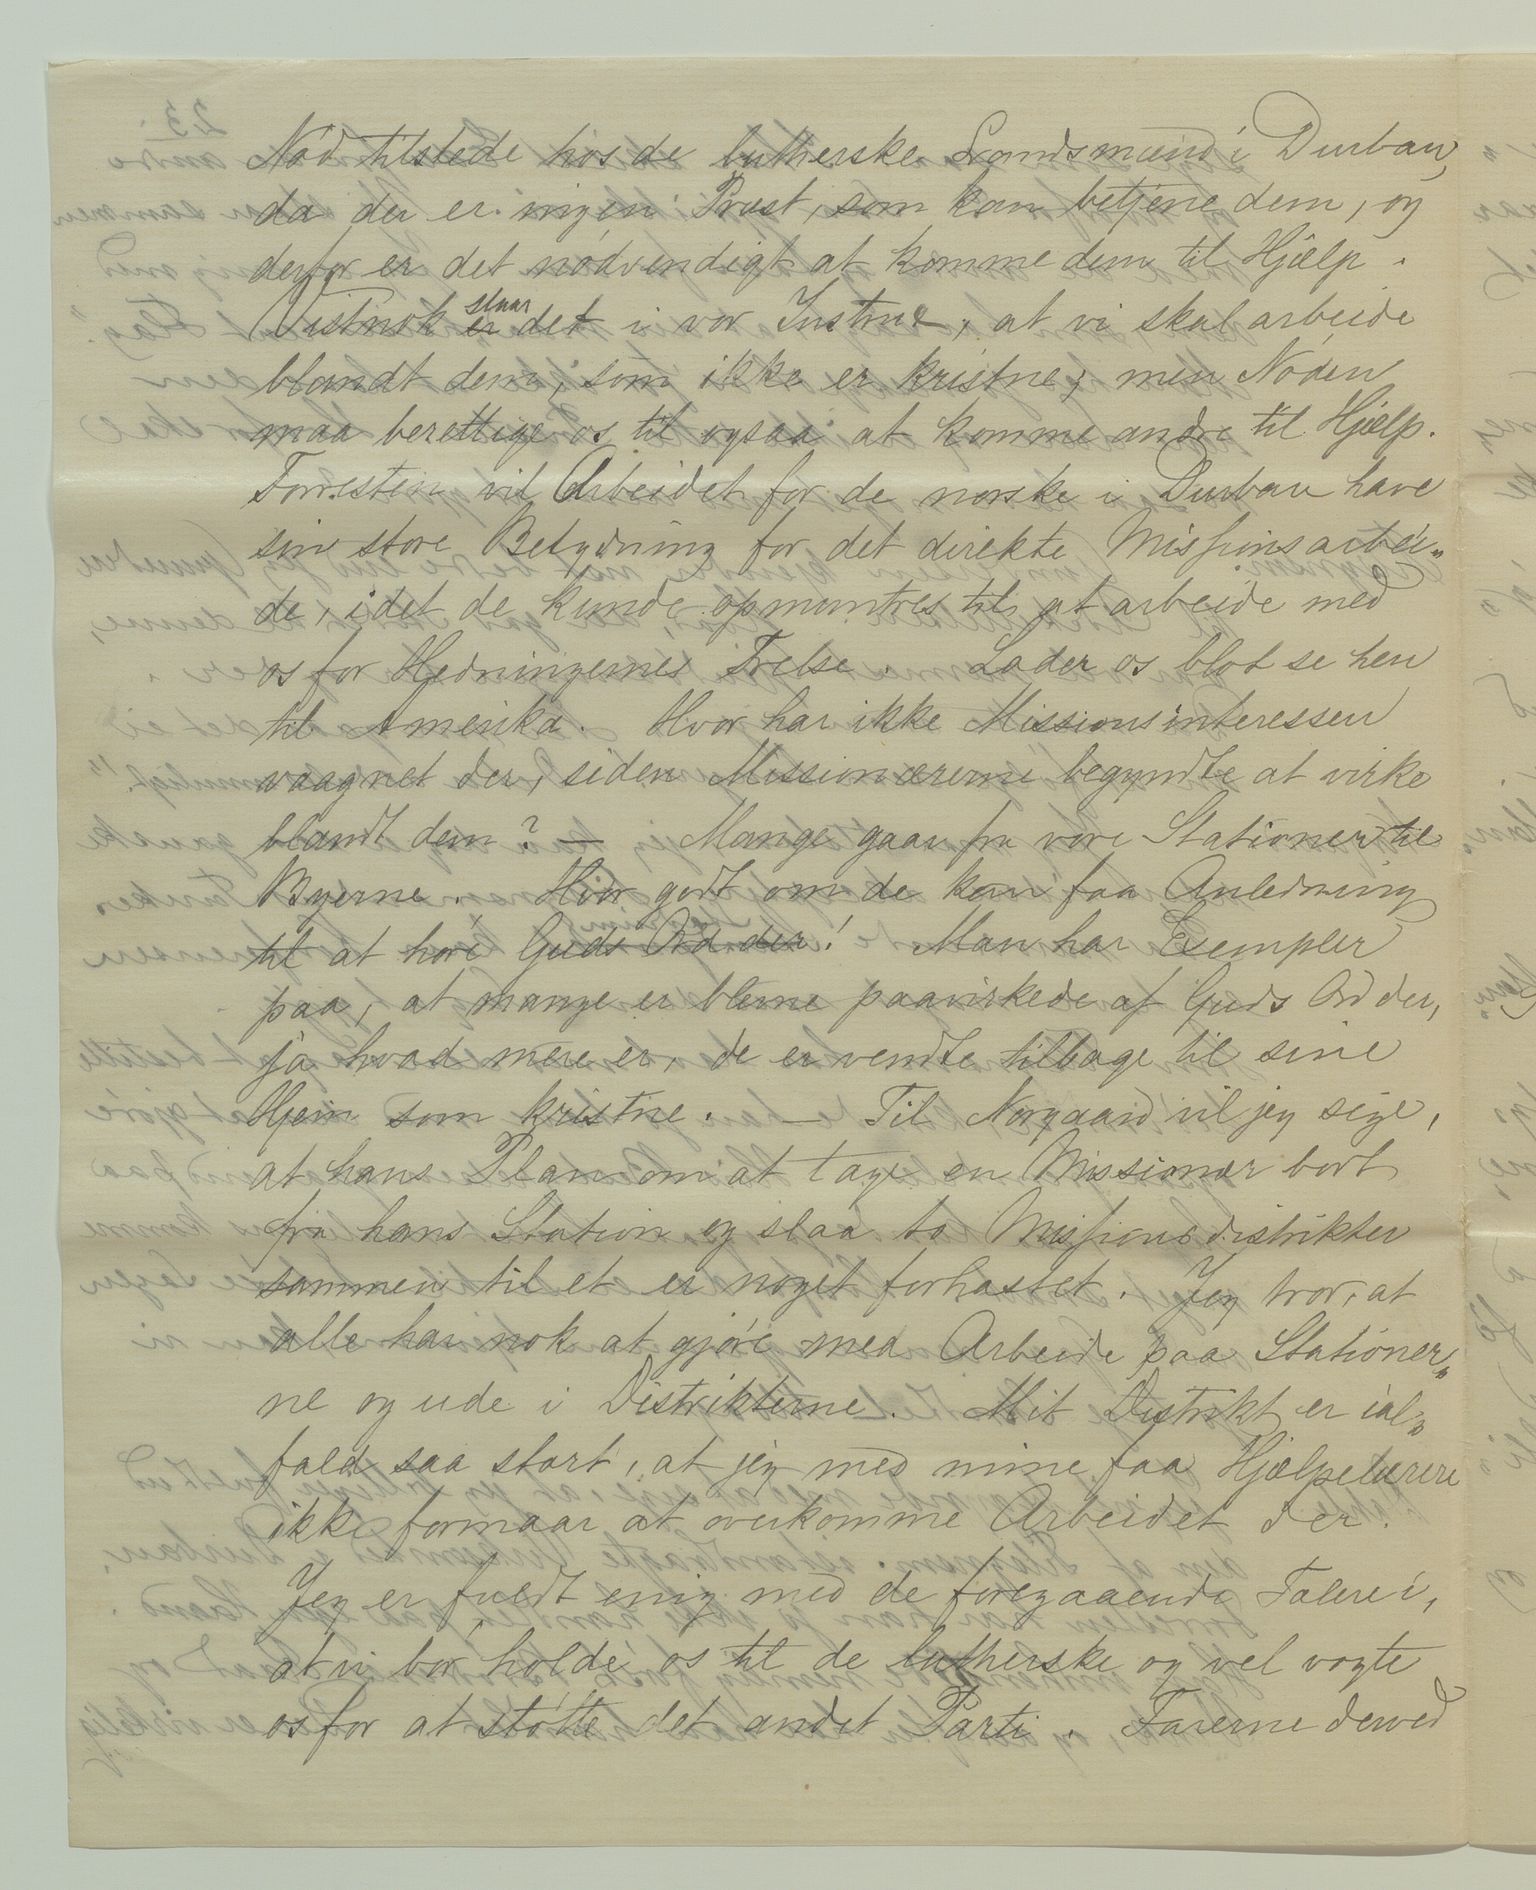 Nød tilstede hos de lutherske Landsmænd i Durban,
da der er ingen Præst, som kan betjene dem, og
derfor er det nødvendigt at komme dem til Hjælp.
Vistnok er staar det i vor Instrux, at vi skal arbeide
blandt dem, som ikke er kristne; men Nøden
maa berettige os til ogsaa at komme andre til Hjælp.
Forresten vil Arbeidet for de norske i Durban have
sin store Betydning for det direkte Missionsarbei„
de, idet de kunde opmuntres til at arbeide med
os for Hedningernes Frelse. Lader os blot se hen
til Amerika. Hvor har ikke Missionsinteressen
vaagnet der, siden Missionærerne begyndte at virke
blandt dem? — Mange gaar fra vore Stationer til
Byerne. Hvor godt om de kan faa Anledning
til at høre Guds Ord der! Man har Exempler
paa, at mange er blevne paavirkede af Guds Ord der,
ja hvad mere er, de er vendte tilbage til sine
Hjem som kristne. — Til Norgaard vil jeg sige,
at hans Plan om at tage en Missionær bort
fra hans Station og slaa to Missionsdistrikter
sammen til et er noget forhastet. Jeg tror, at
alle har nok at gjøre med Arbeide paa Stationer„
ne og ude i Distrikterne. Mit Distrikt er ial„
fald saa stort, at jeg med mine faa Hjælpelærere
ikke formaar at overkomme Arbeidet der.
Jeg er fuldt enig med de foregaaende Talere i,
at vi bør holde os til de lutherske og vel vogte
os for at støtte det andet Parti. Farerne derved